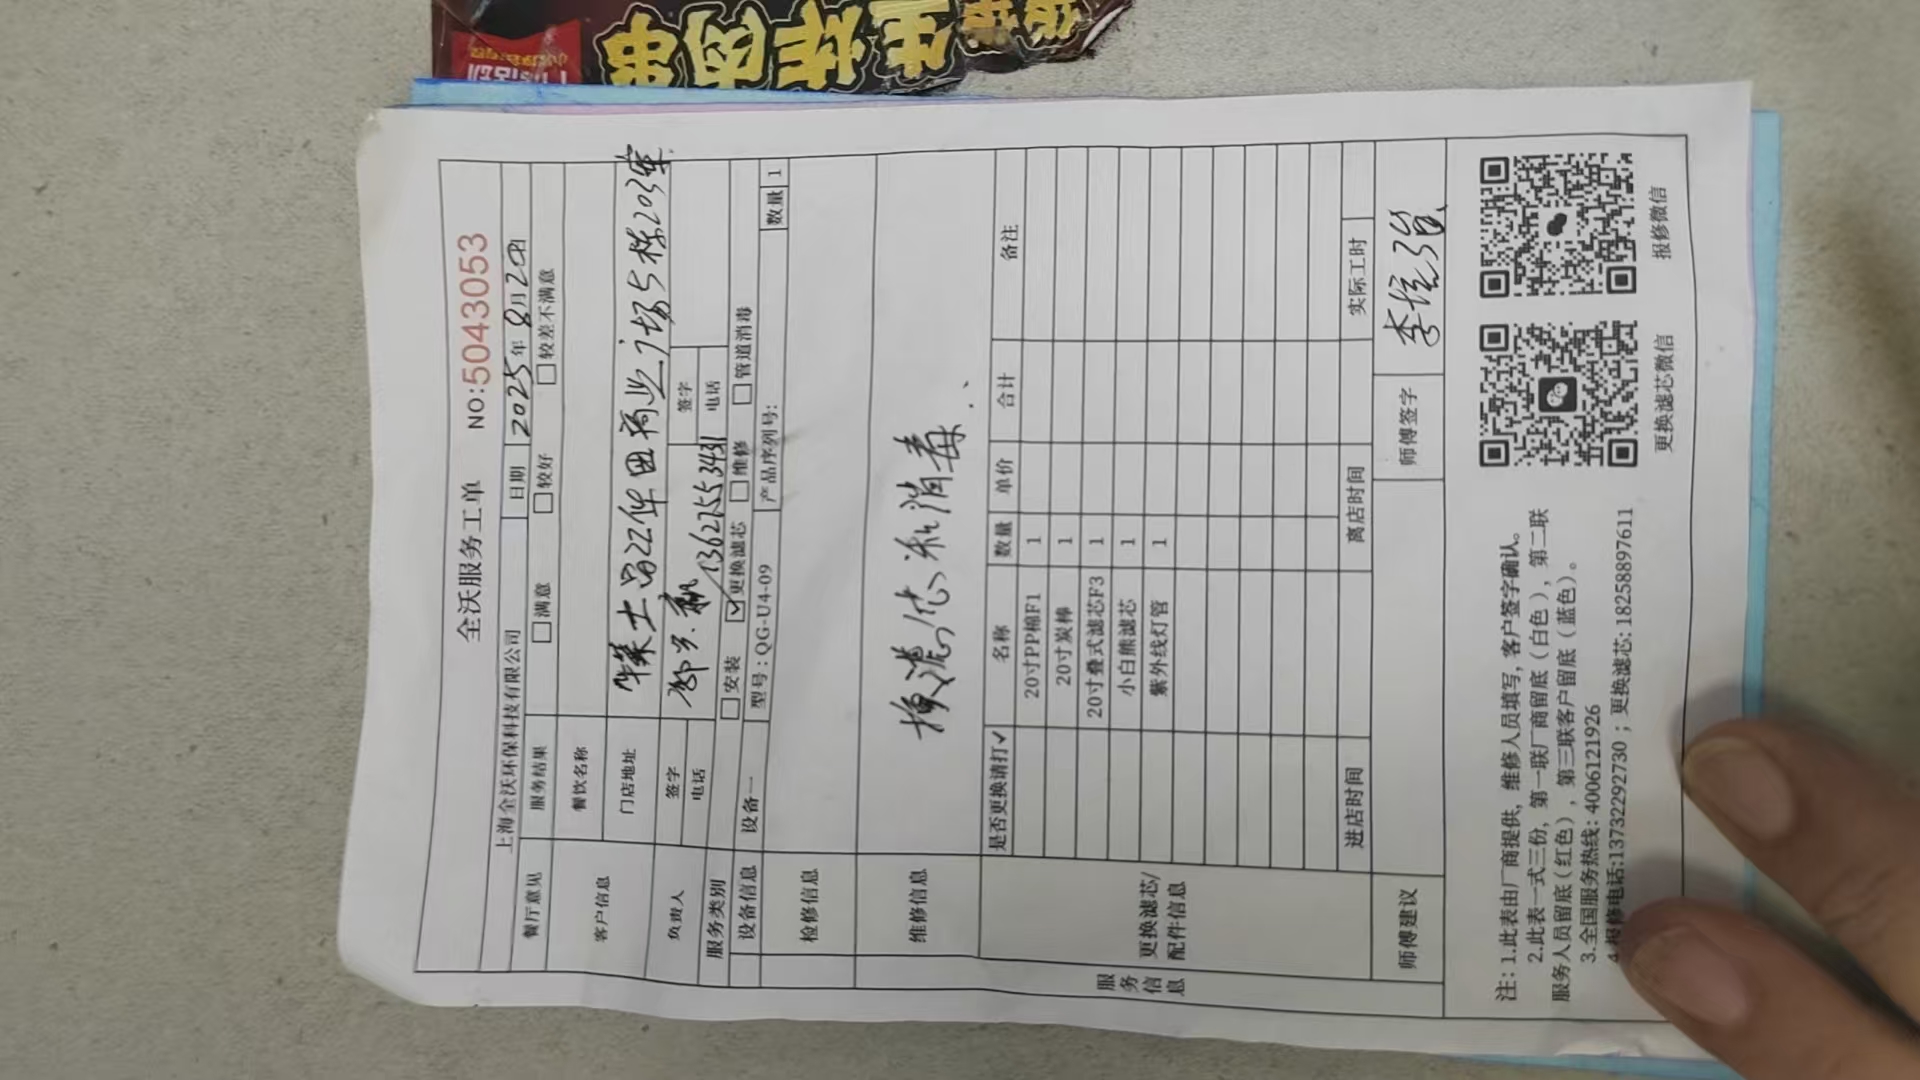 串肉炸生
全沃服务工单
NO:5043053
上海全沃环保科技有限公司
日期
2025年8月20日
餐厅意见
服务结果
满意
较好
较差不满意
客户信息
餐饮名称
门店地址
华莱士 商业广场5栋203室
负责人
签字
签字
电话
13621553431
电话
服务类别
安装
更换滤芯
维修
管道消毒
设备信息
设备一
型号：QG-U4-09
产品序列号:
数量
1
检修信息
维修信息
换滤芯 消毒
服务信息
更换滤芯/配件信息
是否更换请打✓
名称
数量
单价
合计
备注
20寸PP棉F1
1
20寸炭棒
1
20寸叠式滤芯F3
1
小白熊滤芯
1
紫外线灯管
1
进店时间
离店时间
实际工时
师傅建议
师傅签字
注：1.此表由厂商提供，维修人员填写，客户签字确认。
2.此表一式三份，第一联厂商留底（白色），第二联
服务人员留底（红色），第三联客户留底（蓝色）。
3.全国服务热线: 4006121926
4.报修电话:13732292730；更换滤芯: 18258897611
更换滤芯微信
报修微信